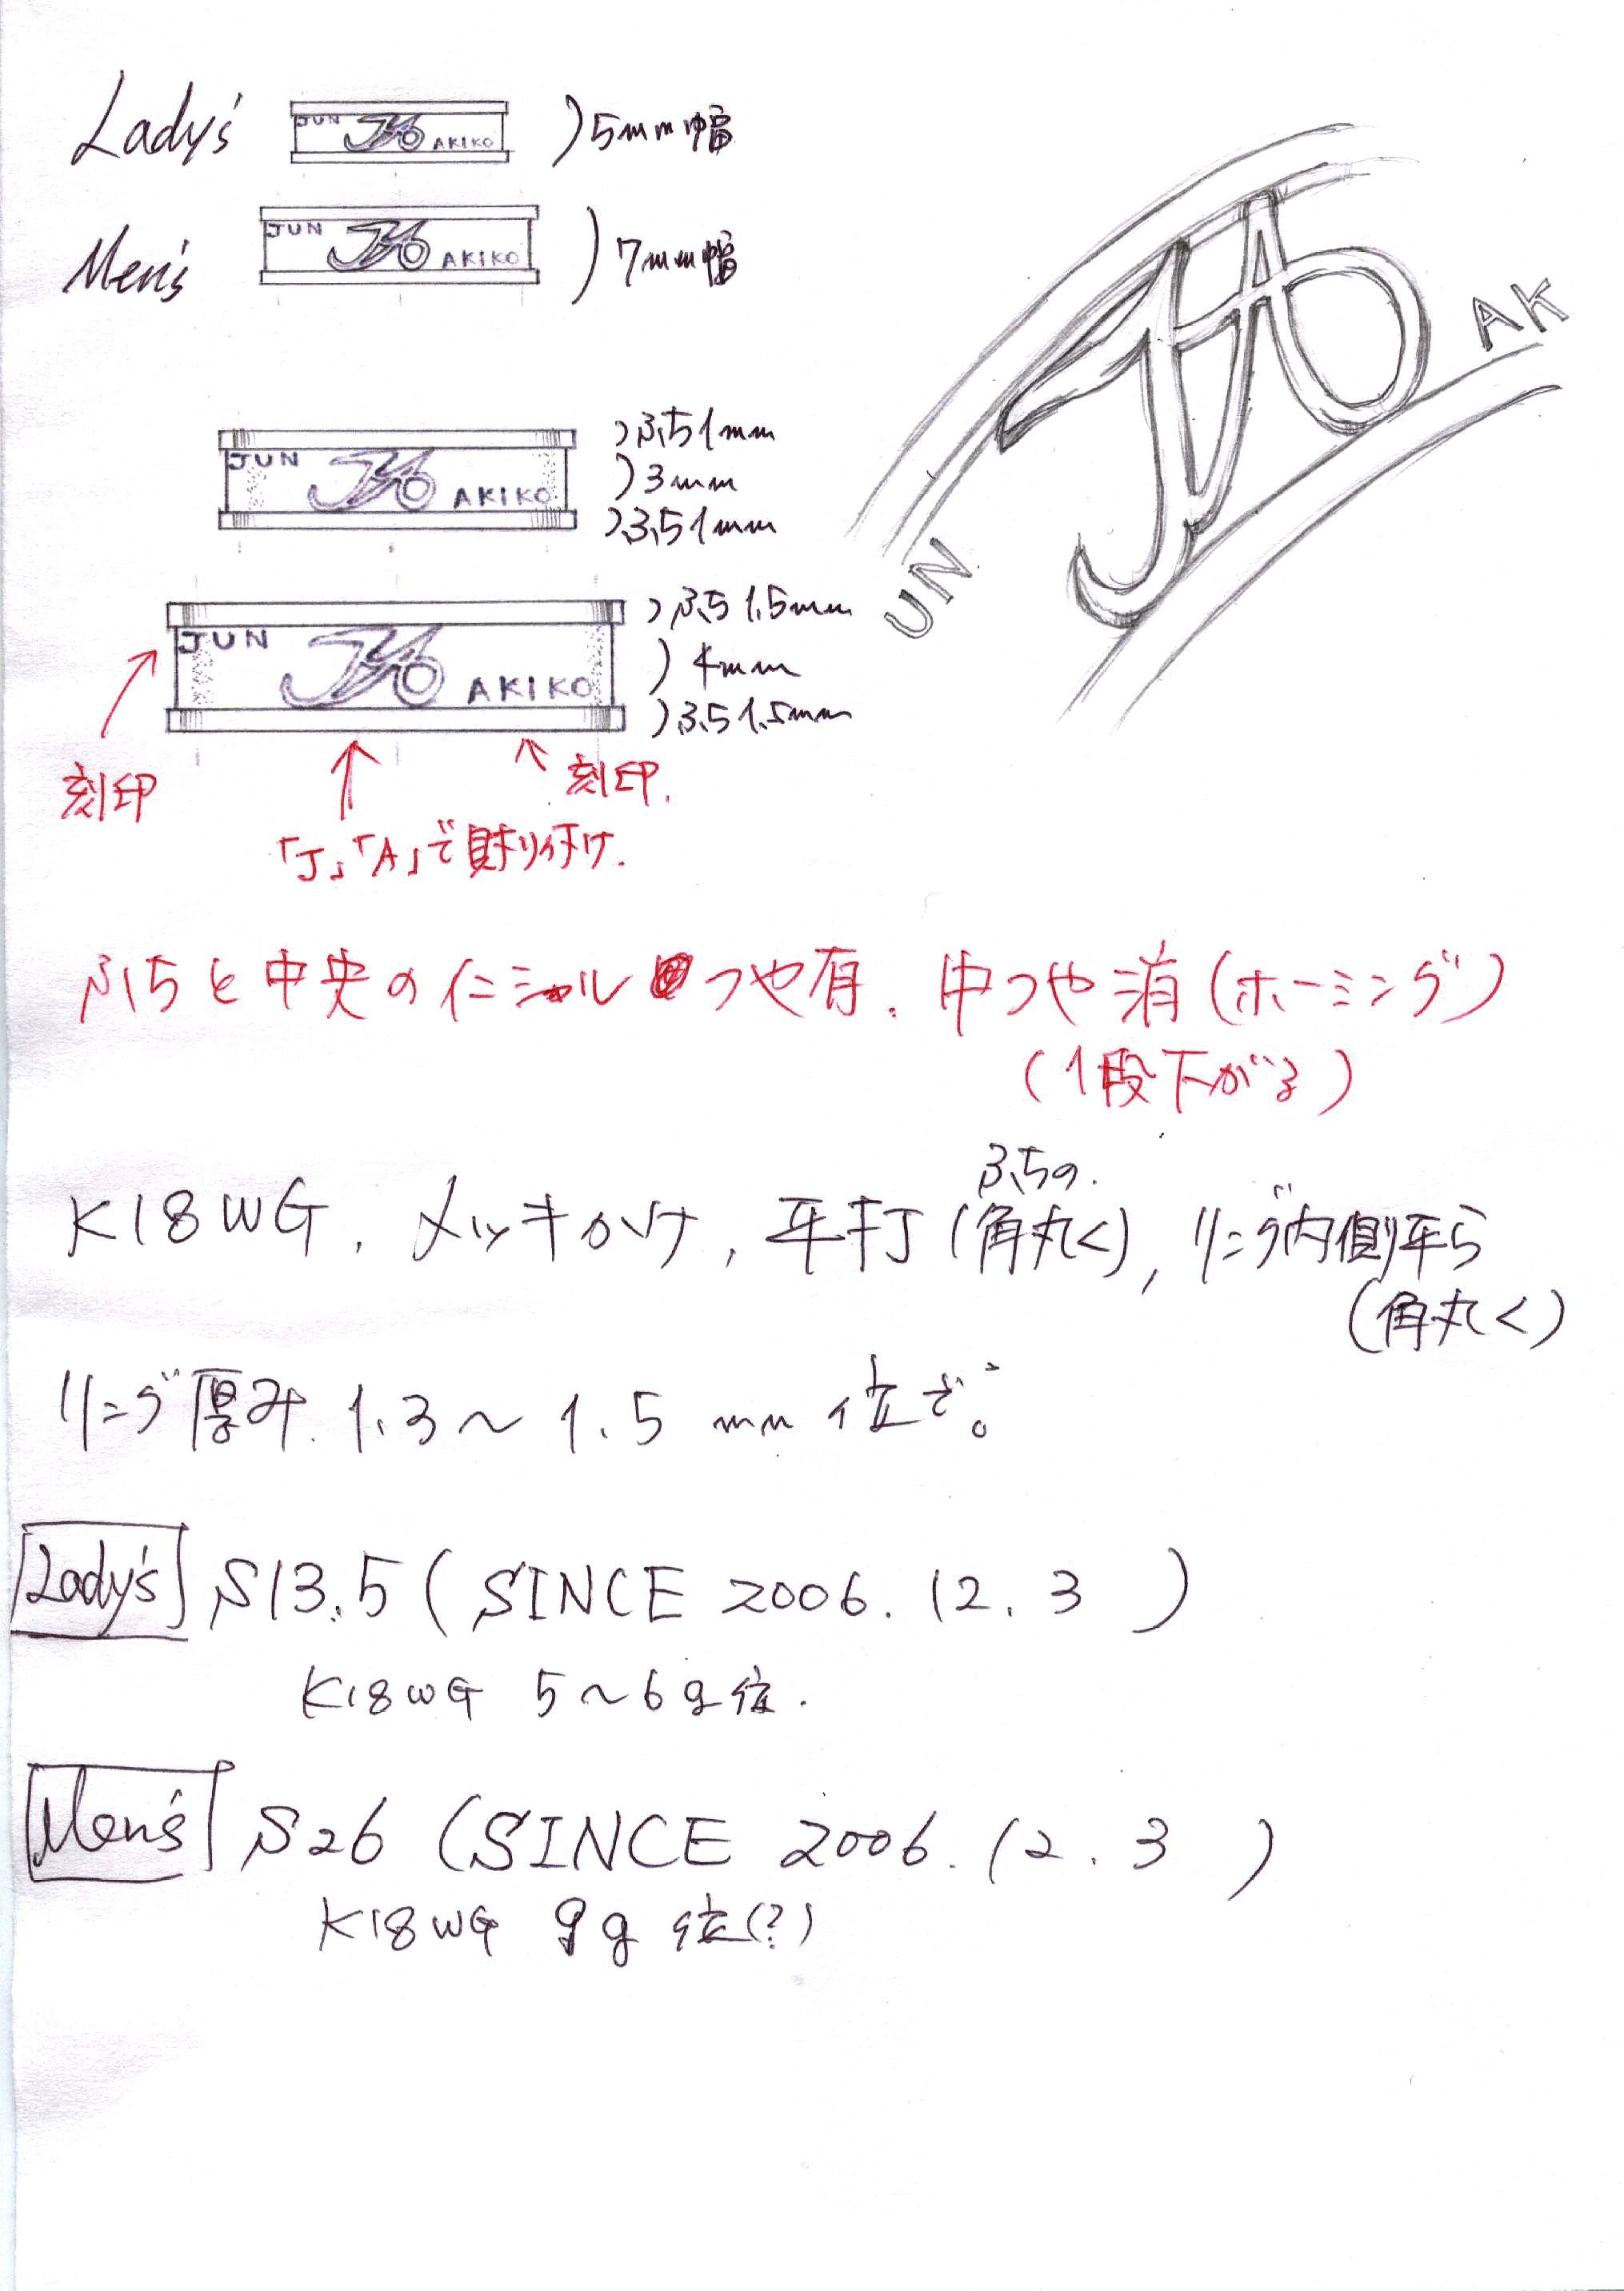 Lady's
JUN JA AKIKO
)5mm幅
Men's
JUN JA AKIKO
)7mm幅
JA
UN
AK
JUN JA AKIKO
)ふち1mm
)3mm
)ふち1mm
JUN JA AKIKO
)ふち1.5mm
)4mm
)ふち1.5mm
刻印
刻印.
「J」「A」で貼り付け.
ふちと中央のイニシャルつや有. 中つや消(ホーミング)
(1段下がる)
K18WG. メッキかけ, 平打(ふちの.角丸く), リング内側平ら
(角丸く)
リング厚み. 1.3〜1.5mm位で。
Lady's S13.5(SINCE 2006.12.3 )
K18WG 5〜6g位.
Men's S26 (SINCE 2006.12.3 )
K18WG 9g位(?)